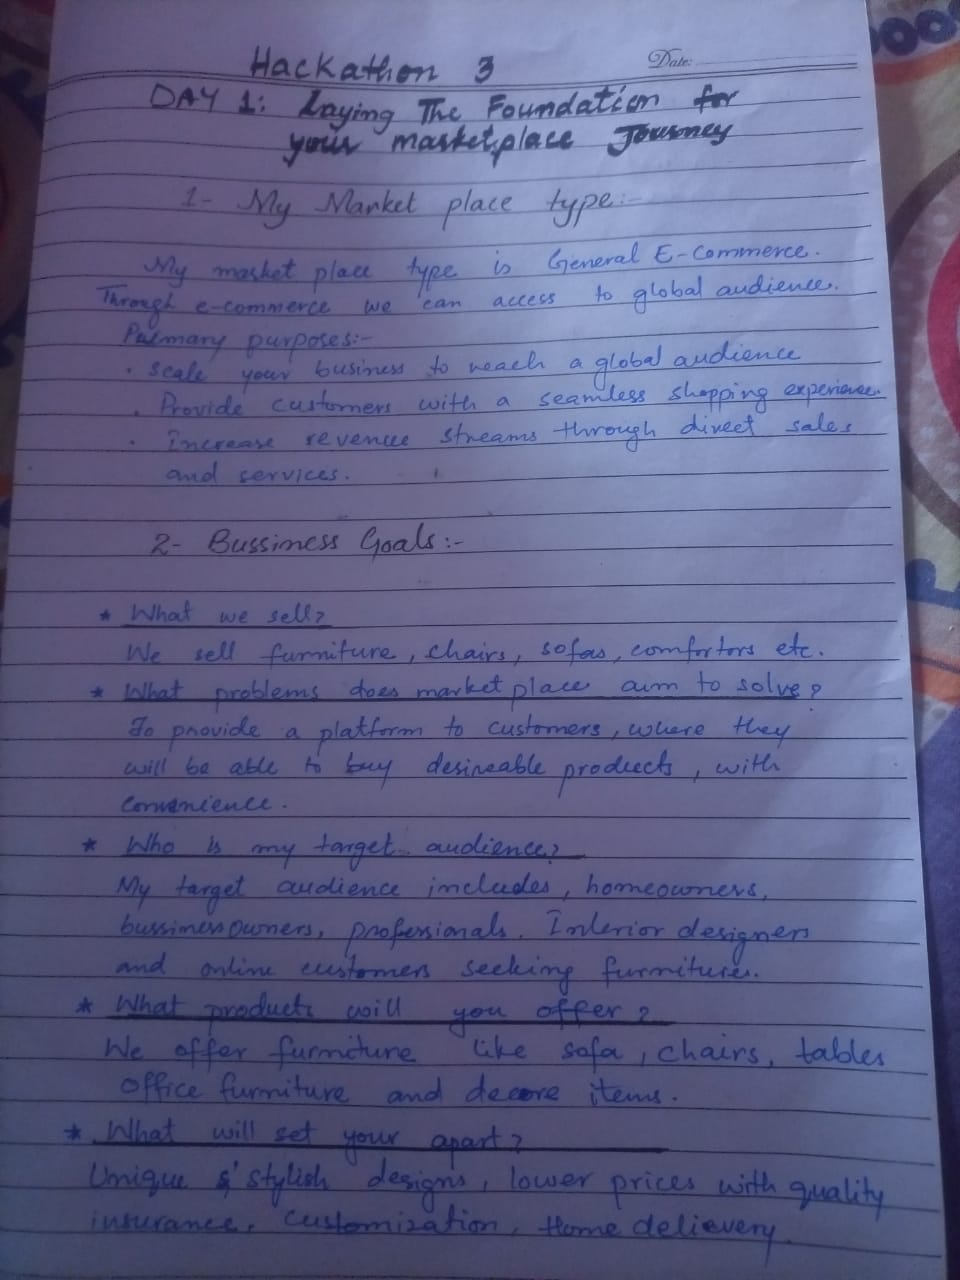 Hackathon 3
Date:
DAY 1: Laying The Foundation for
your marketplace Journey
1- My Market place type:-
My market place type is General E-Commerce.
Through e-commerce we can access to global audience.
Primary purposes:-
• Scale your business to reach a global audience
• Provide customers with a seamless shopping experience.
• Increase revenue streams through direct sales
and services.
2- Bussiness Goals:-
* What we sell?
We sell furniture, chairs, sofas, comfortors etc.
* What problems does market place aim to solve?
To provide a platform to customers, where they
will be able to buy desireable products, with
convenience.
* Who is my target audience?
My target audience includes, homeowners,
bussiness owners, professionals, Interior designers
and online customers seeking furnitures.
* What products will you offer?
We offer furniture like sofa, chairs, tables
office furniture and decore items.
* What will set your apart?
Unique & stylish designs, lower prices with quality
insurance, customization, Home delievery.